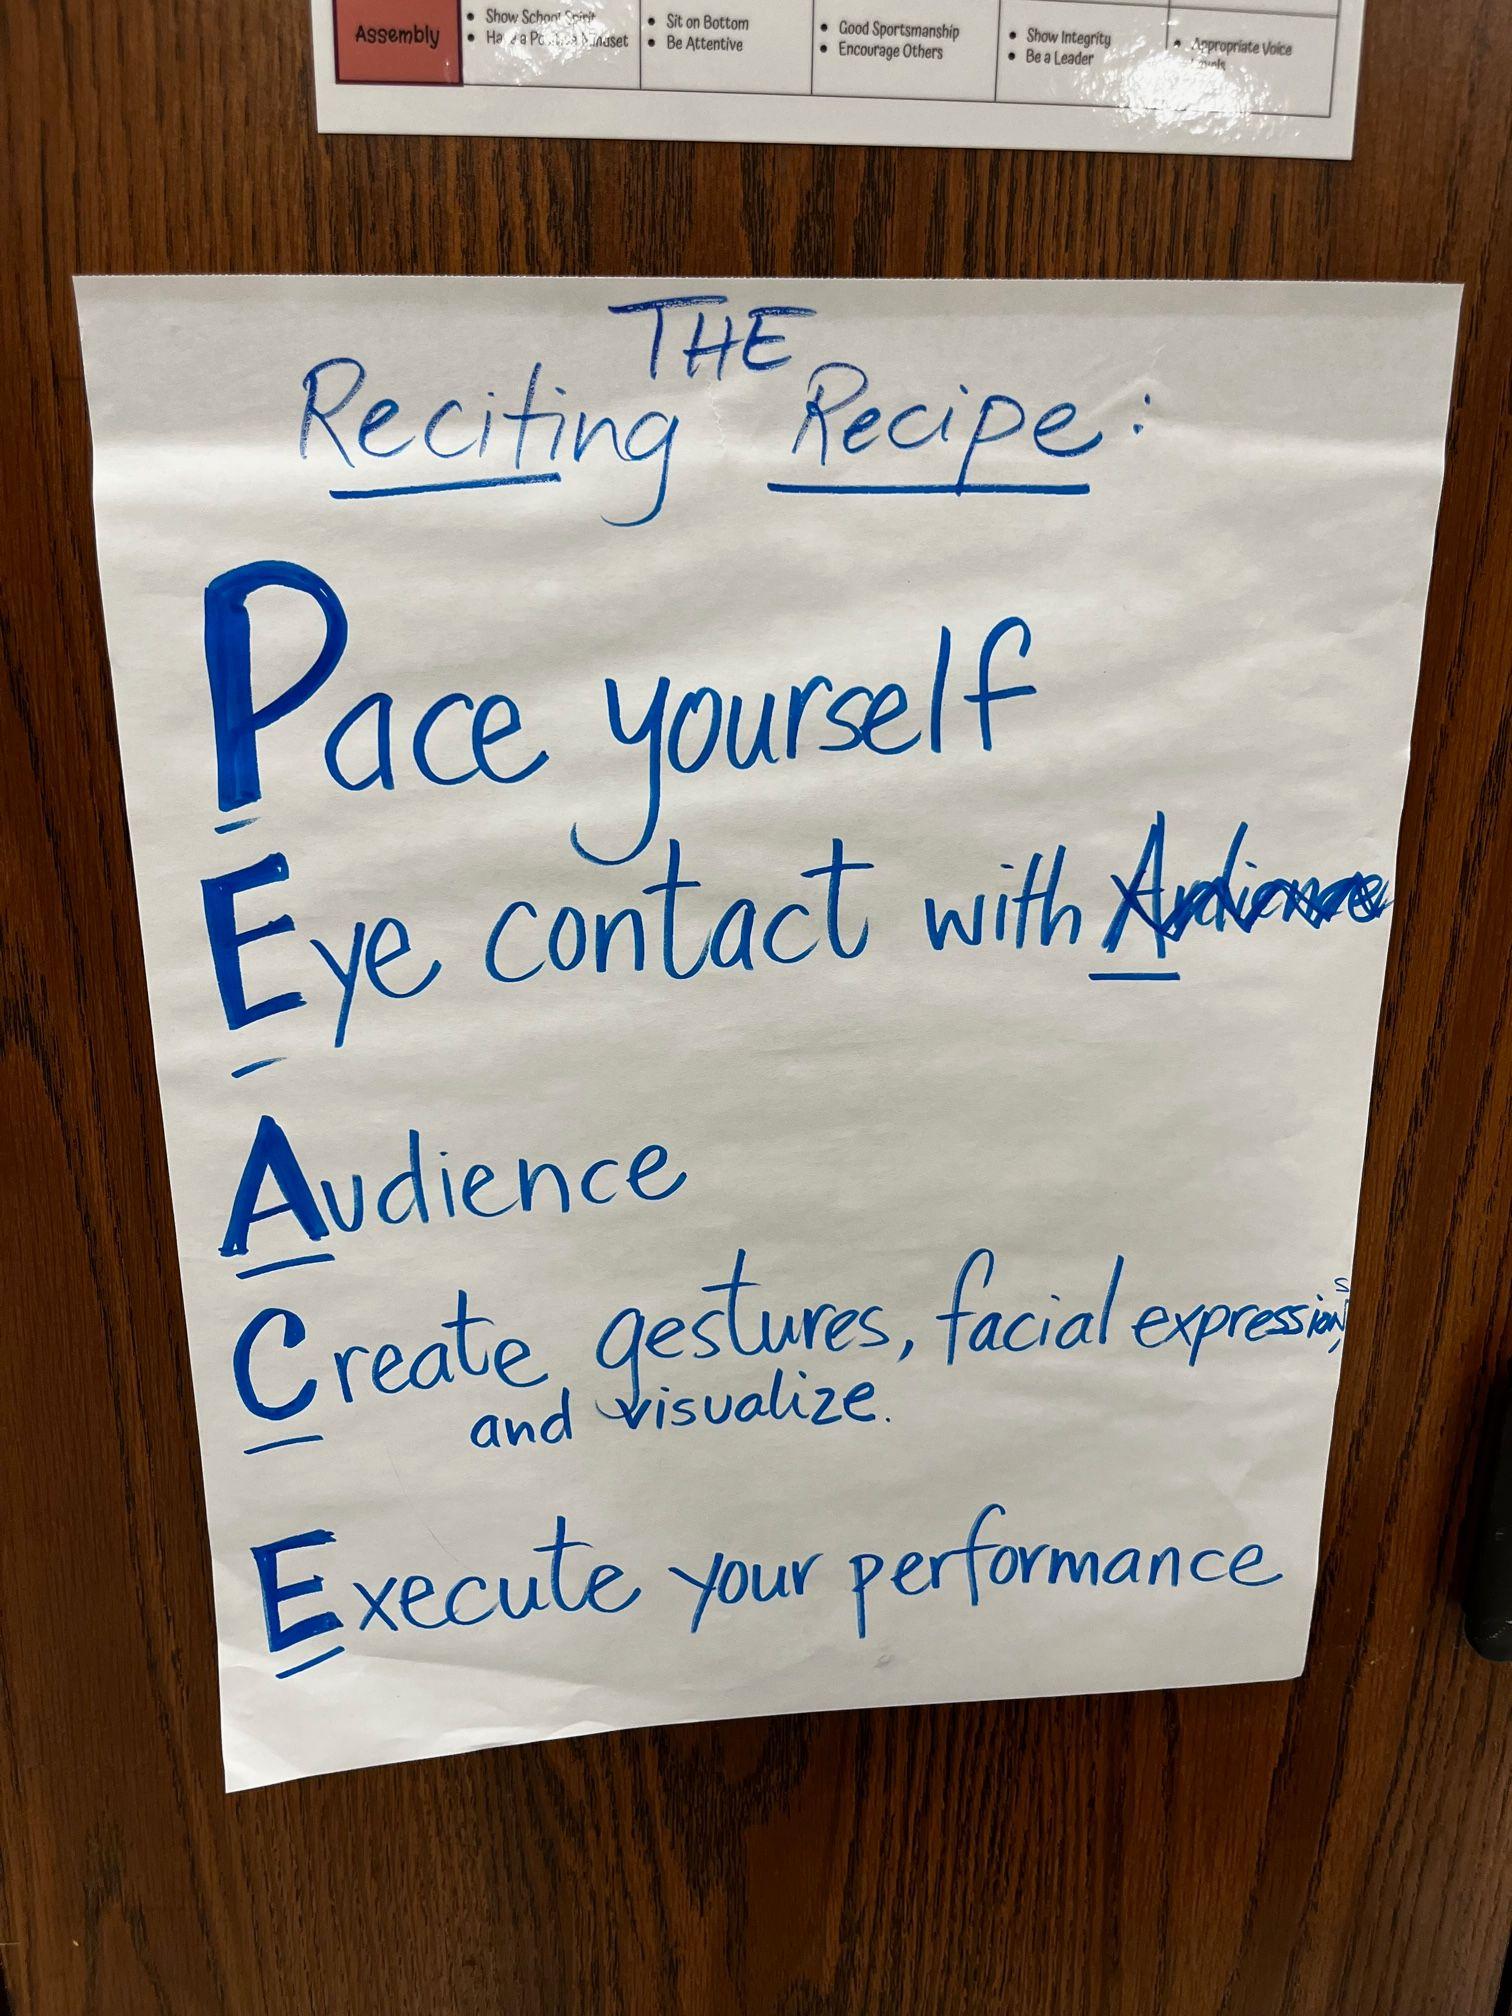 Assembly
• Show School Spirit
• Have a Positive Mindset
• Sit on Bottom
• Be Attentive
• Good Sportsmanship
• Encourage Others
• Show Integrity
• Be a Leader
• Appropriate Voice
Levels
THE
Reciting Recipe:
Pace yourself
Eye contact with Audience
Audience
Create gestures, facial expressions,
and visualize.
Execute your performance